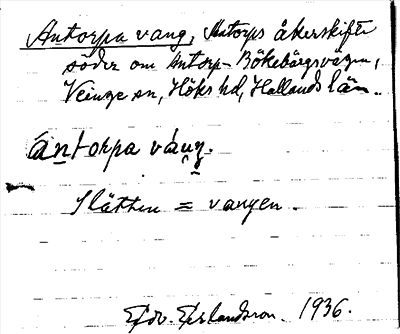 Antorpa vang, Antorps åkerskifte
söder om Antorp-Bökebärgsvägen,
Veinge sn, Höks hd, Hallands län.
ántorpa váng.
Slätten = vangen.
Edv. Erlandsson. 1936.